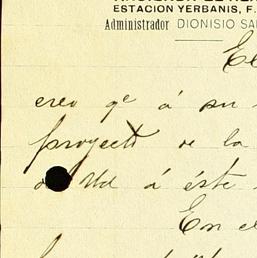 ESTACION YERBANIS, F.
Administrador DIONISIO SA
El
creo qe á su
proyecto de la
Ud á éste
En el